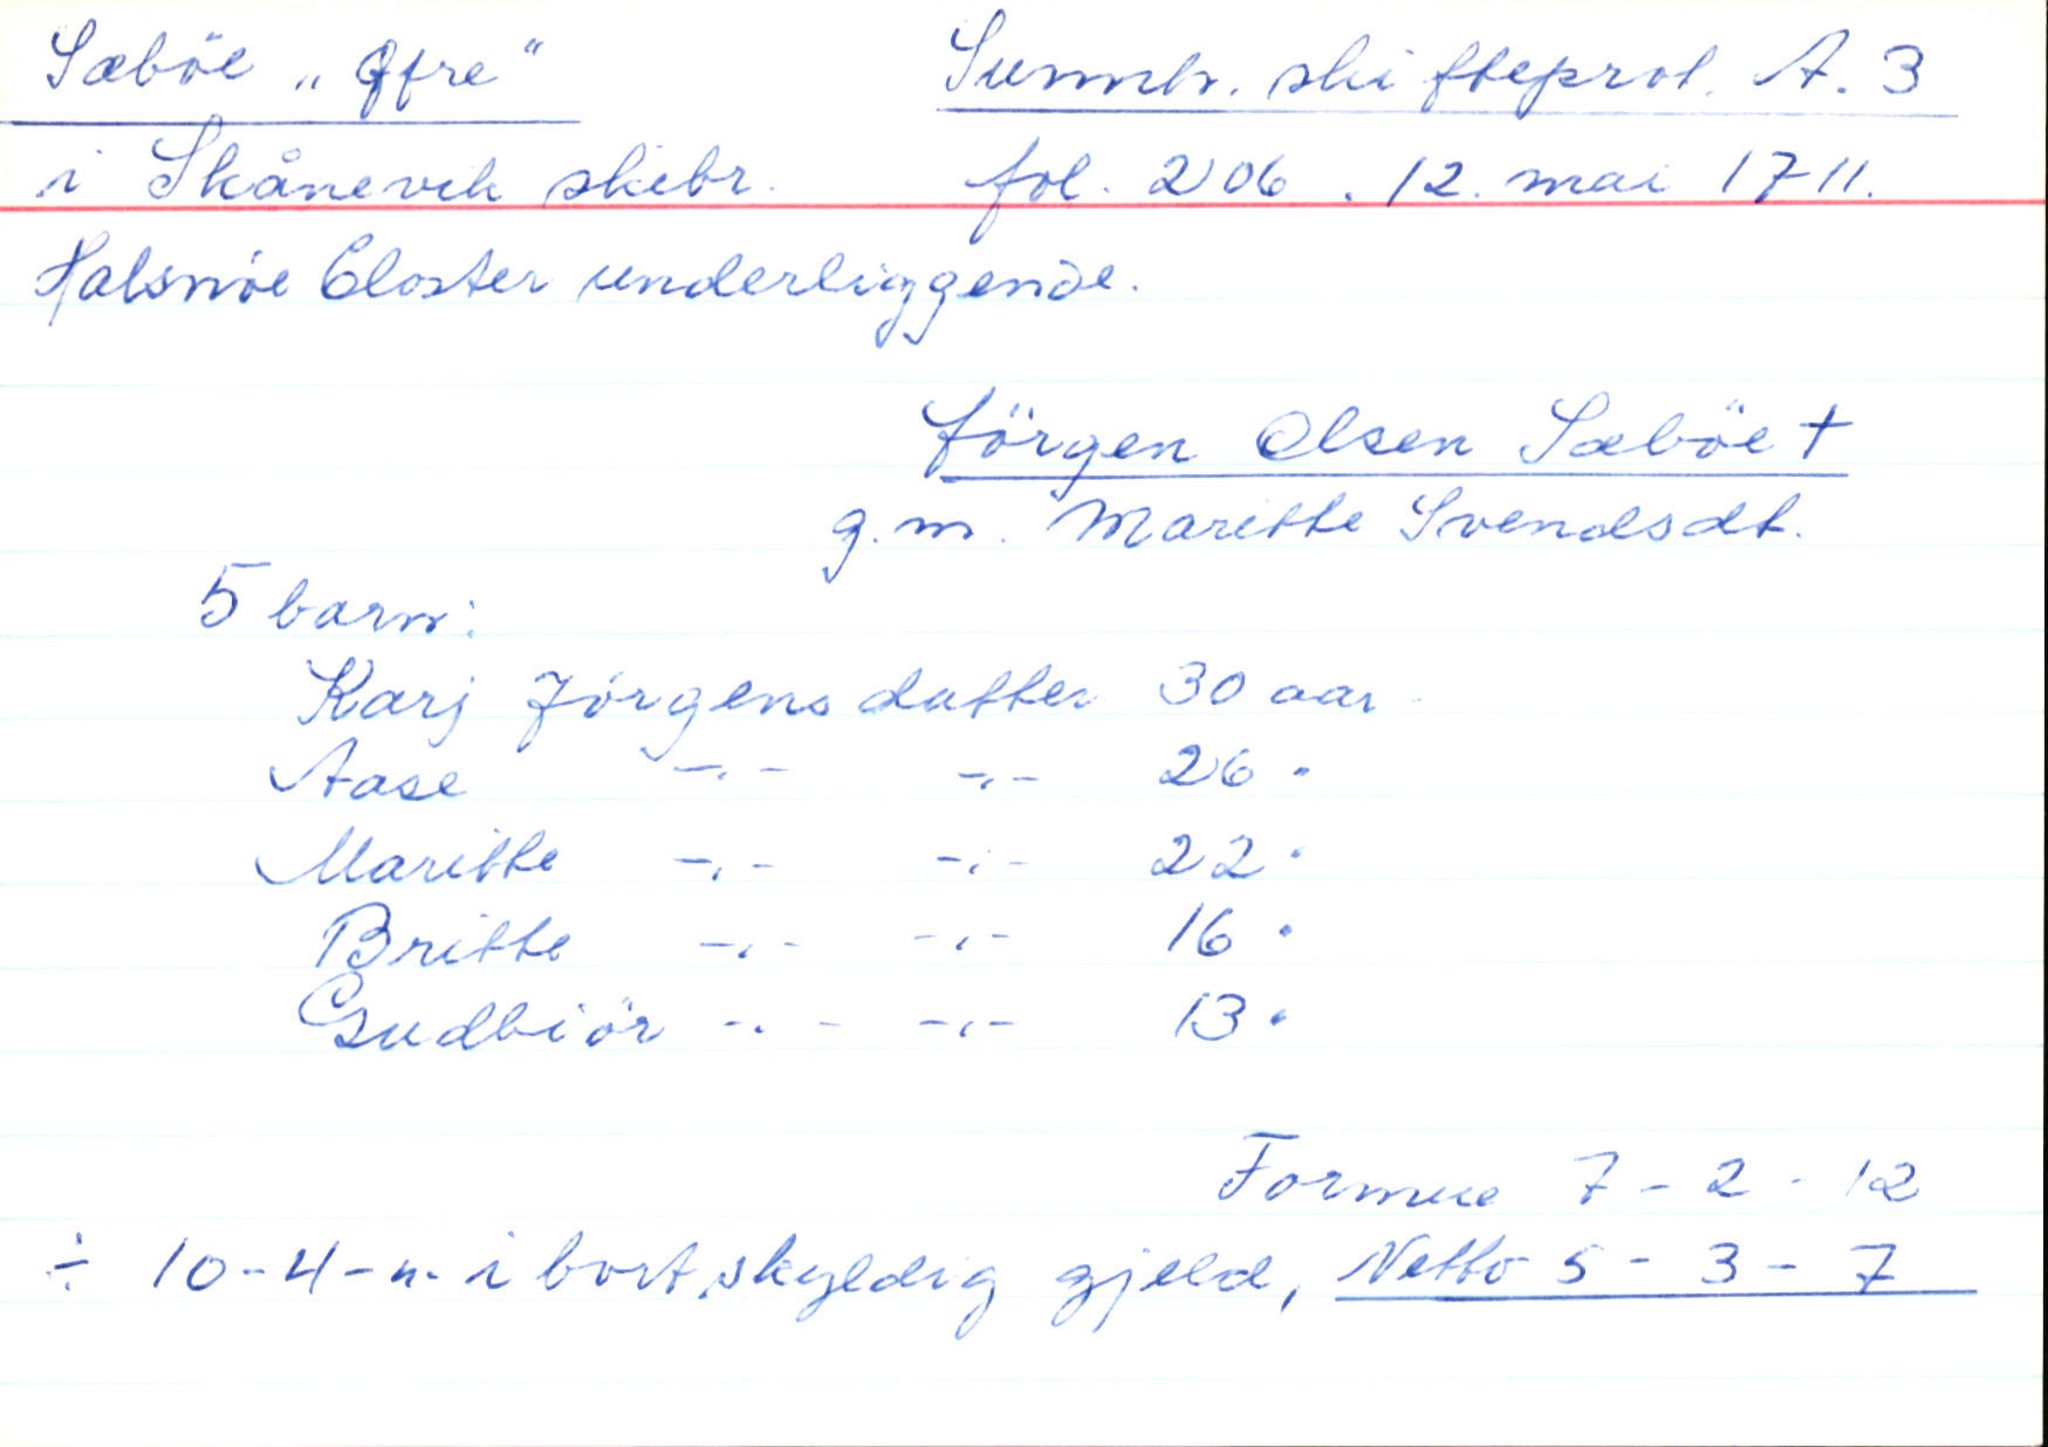 Sæböe „Öfre“ Sunnh. skifteprot. A. 3
i Skånevik skibr. fol. 206. 12. mai 1711.
Halsnöe Closter underliggende.
Jörgen Olsen Sæböe †
g.m. Maritte Svendsdt.
5 barn:
Karj Jörgensdatter 30 aar
Aase -.- -.- 26 "
Maritte -.- -.- 22 "
Britte -.- -.- 16 "
Gudbiör -.- -.- 13 "
Formue 7 - 2 - 12
÷ 10-4-"- i bortskyldig gjeld, Netto 5 - 3 - 7